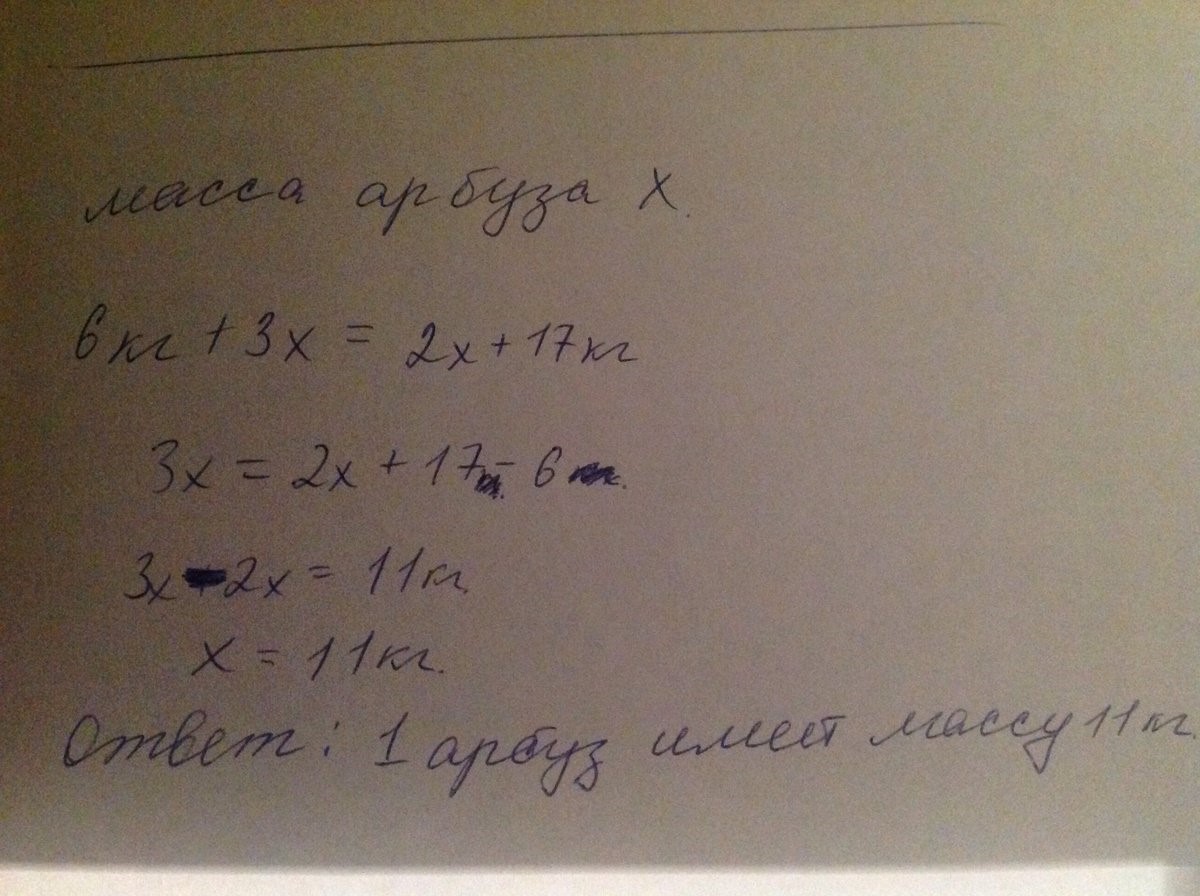 масса арбуза x.
6кг + 3x = 2x + 17кг
3x = 2x + 17 - 6
3x - 2x = 11кг
x = 11кг.
Ответ: 1 арбуз имеет массу 11кг.